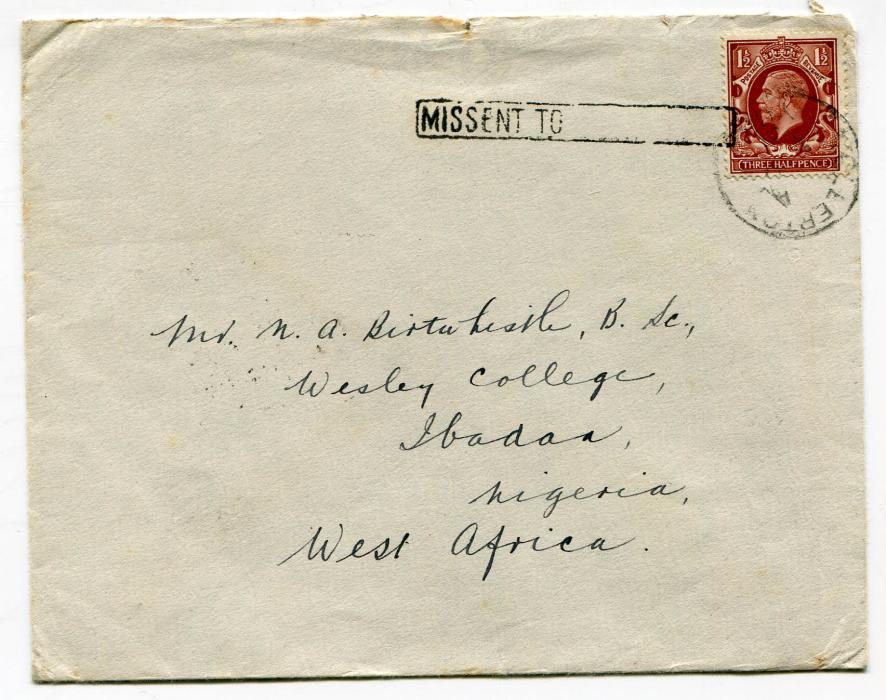 1½ 1½
POSTAGE REVENUE
THREE HALFPENCE
MISSENT TO
Mr. N. A. Birtwhistle, B. Sc.,
Wesley College,
Ibadan,
Nigeria,
West Africa.